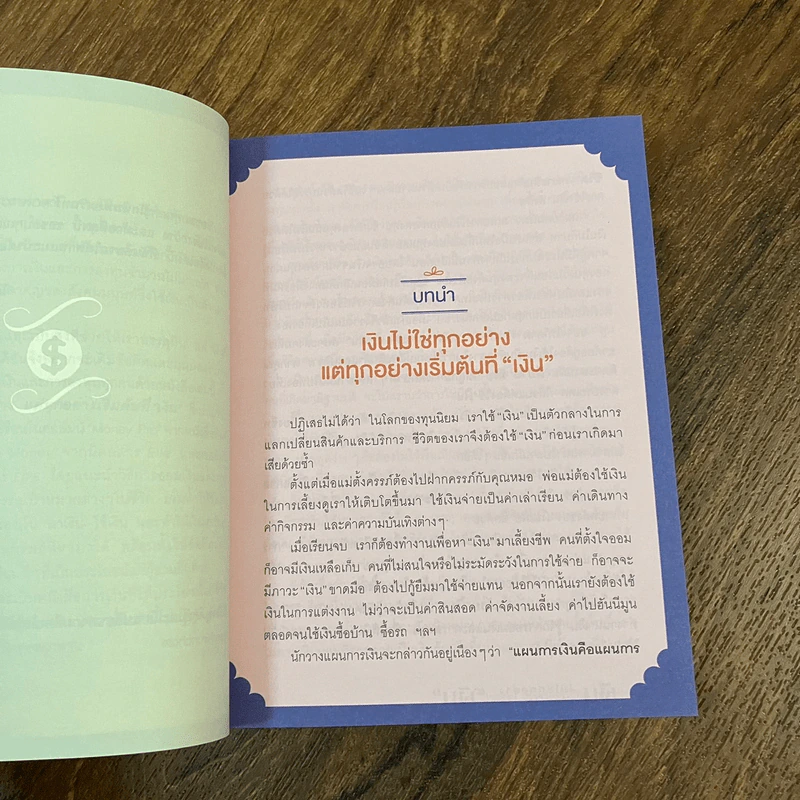 บทนำ
เงินไม่ใช่ทุกอย่าง
แต่ทุกอย่างเริ่มต้นที่ “เงิน”
ปฏิเสธไม่ได้ว่า ในโลกของทุนนิยม เราใช้ “เงิน” เป็นตัวกลางในการ
แลกเปลี่ยนสินค้าและบริการ ชีวิตของเราจึงต้องใช้ “เงิน” ก่อนเราเกิดมา
เสียด้วยซ้ำ
ตั้งแต่เมื่อแม่ตั้งครรภ์ต้องไปฝากครรภ์กับคุณหมอ พ่อแม่ต้องใช้เงิน
ในการเลี้ยงดูเราให้เติบโตขึ้นมา ใช้เงินจ่ายเป็นค่าเล่าเรียน ค่าเดินทาง
ค่ากิจกรรม และค่าความบันเทิงต่างๆ
เมื่อเรียนจบ เราก็ต้องทำงานเพื่อหา “เงิน” มาเลี้ยงชีพ คนที่ตั้งใจออม
ก็อาจมีเงินเหลือเก็บ คนที่ไม่สนใจหรือไม่ระมัดระวังในการใช้จ่าย ก็อาจจะ
มีภาวะ “เงิน” ขาดมือ ต้องไปกู้ยืมมาใช้จ่ายแทน นอกจากนั้นเรายังต้องใช้
เงินในการแต่งงาน ไม่ว่าจะเป็นค่าสินสอด ค่าจัดงานเลี้ยง ค่าไปฮันนีมูน
ตลอดจนใช้เงินซื้อบ้าน ซื้อรถ ฯลฯ
นักวางแผนการเงินจะกล่าวกันอยู่เนืองๆ ว่า “แผนการเงินคือแผนการ